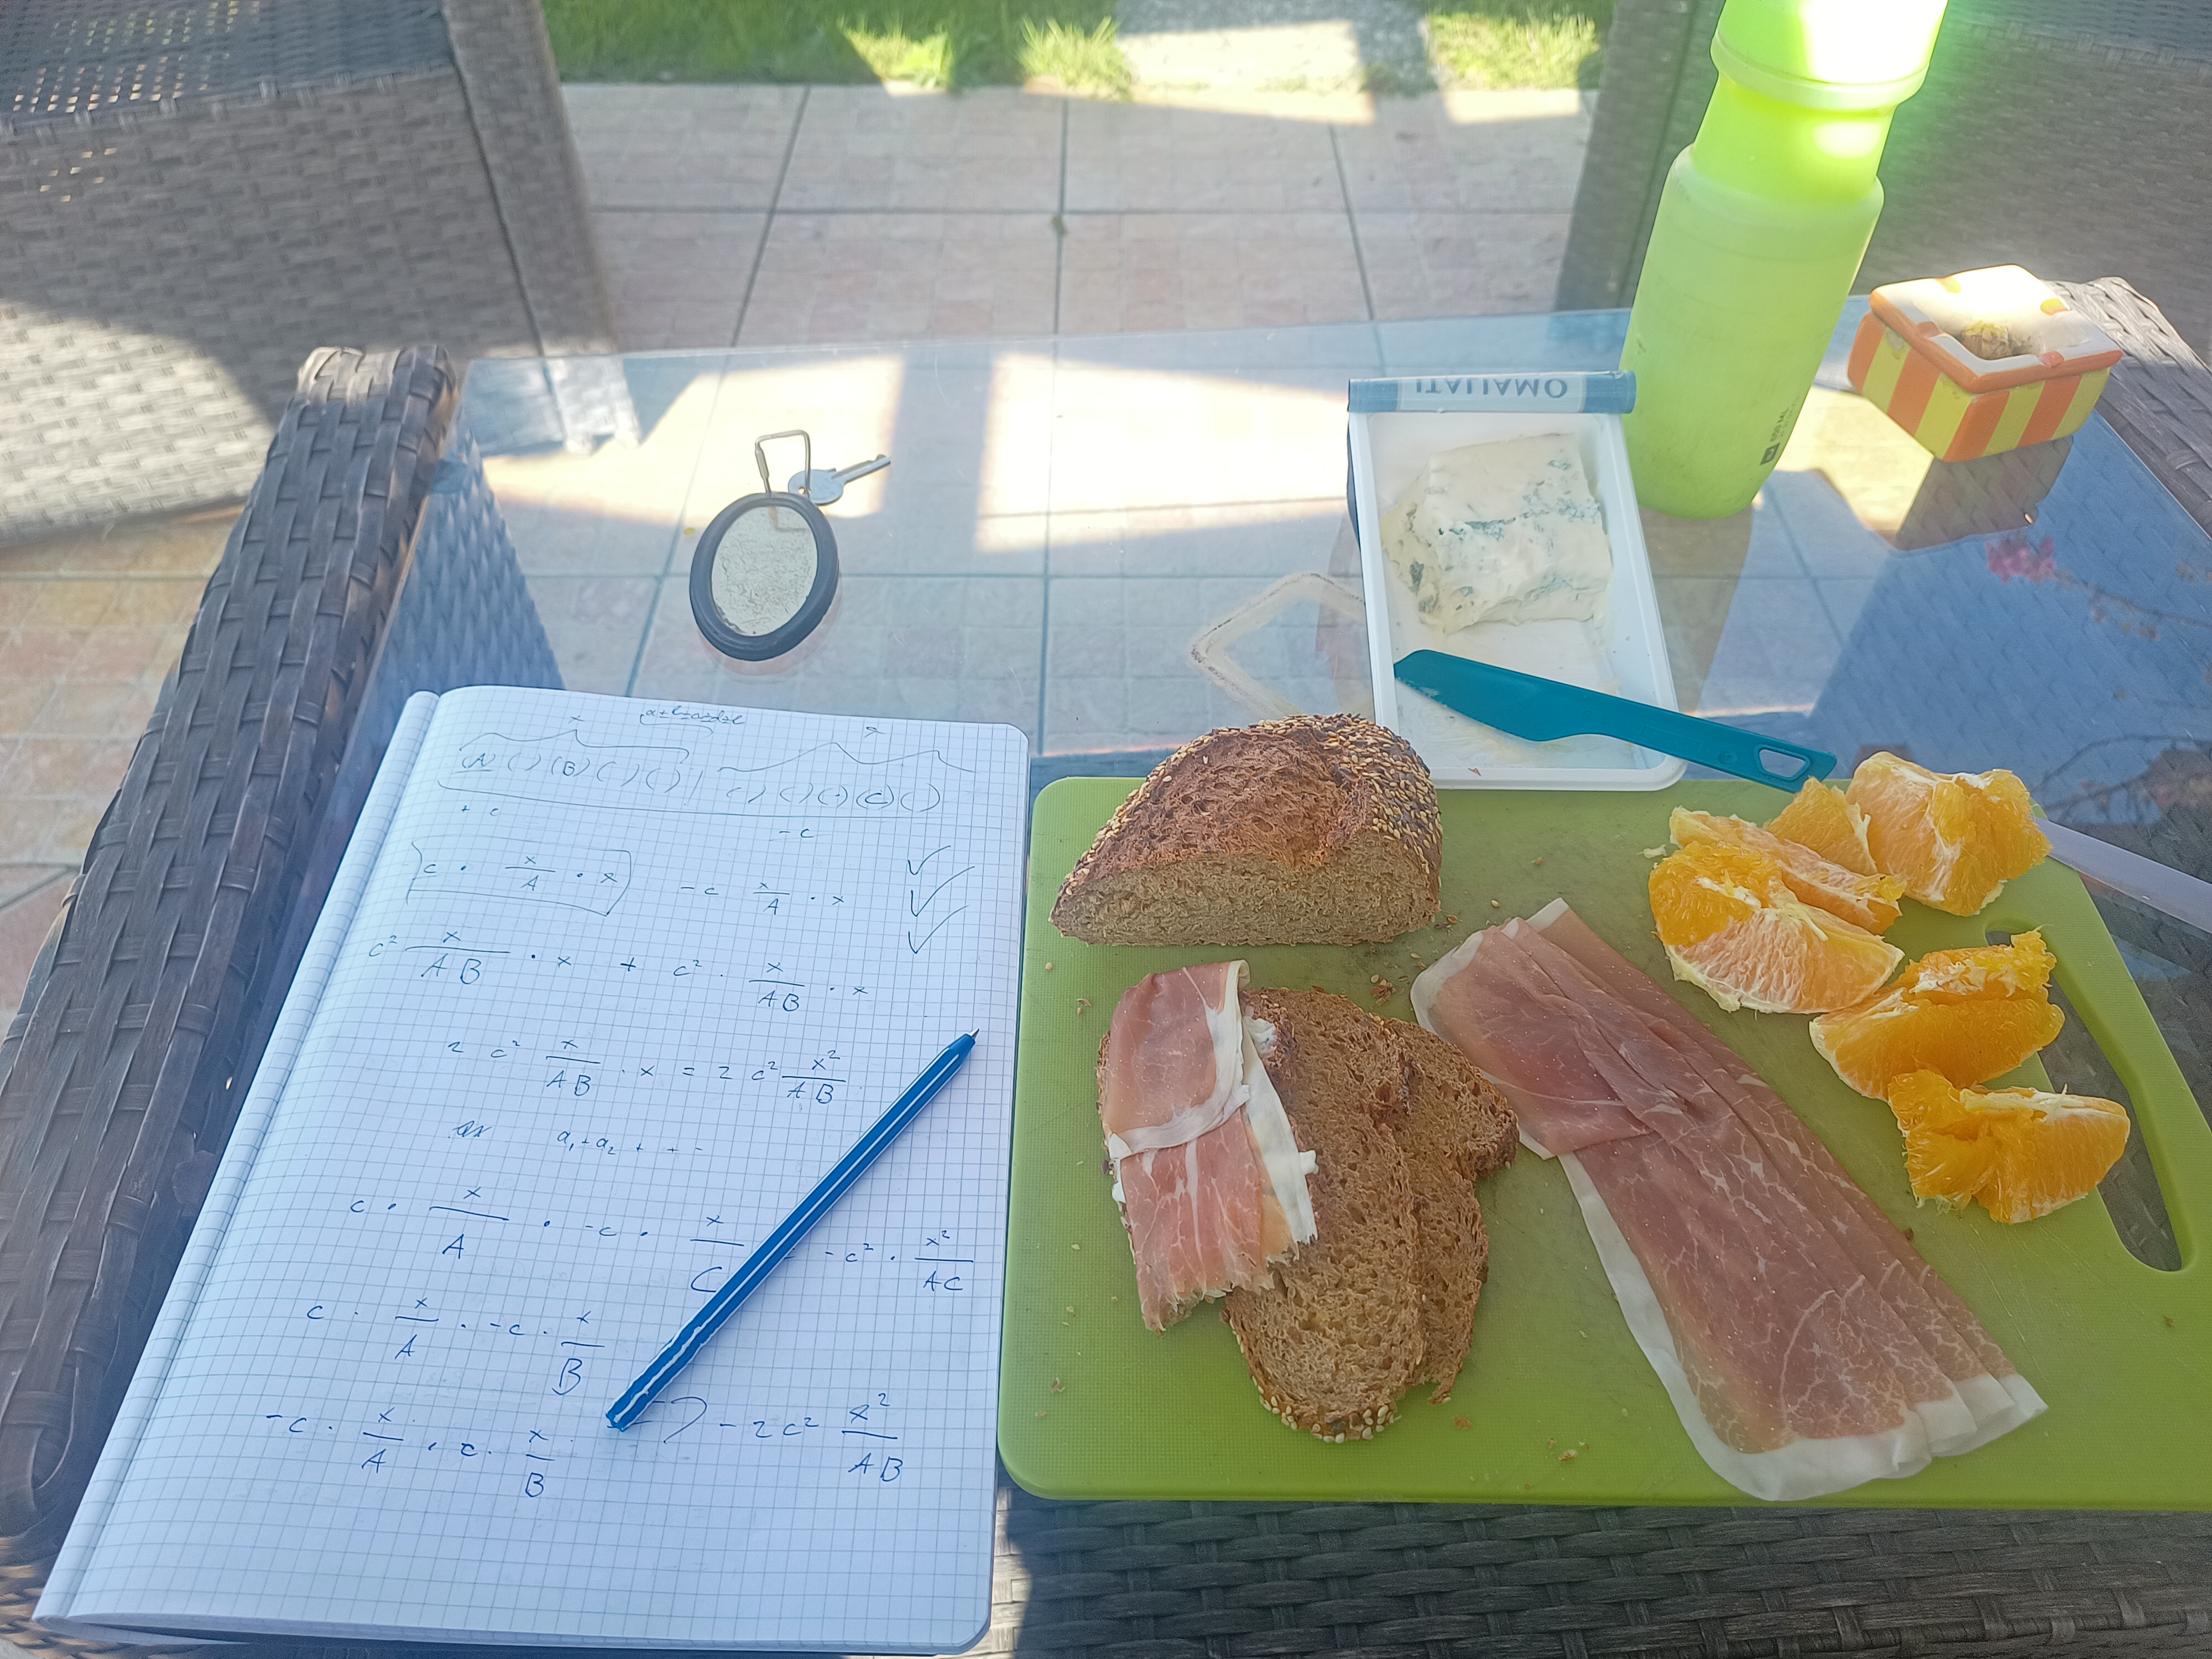 ITALIAMO
800 ML
x
(A) ( ) (B) ( ) ( ) | ( ) ( ) ( ) (C) ( )
+ c
- c
c · x/A · x   - c x/A · x
c² x/AB · x + c² · x/AB · x
2 c² x/AB · x = 2 c² x²/AB
a₁ + a₂ + + -
c · x/A · -c · x/C - c² · x²/AC
c · x/A · -c · x/B
-c · x/A · c · x/B - 2c² x²/AB